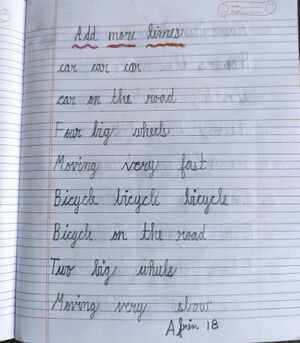 Add more limes
car car car
car on the road
Four big wheels
Moving very fast
Bicycle bicycle bicycle
Bicycle on the road
Two big whuls
Moving very slow
Afrin 1B